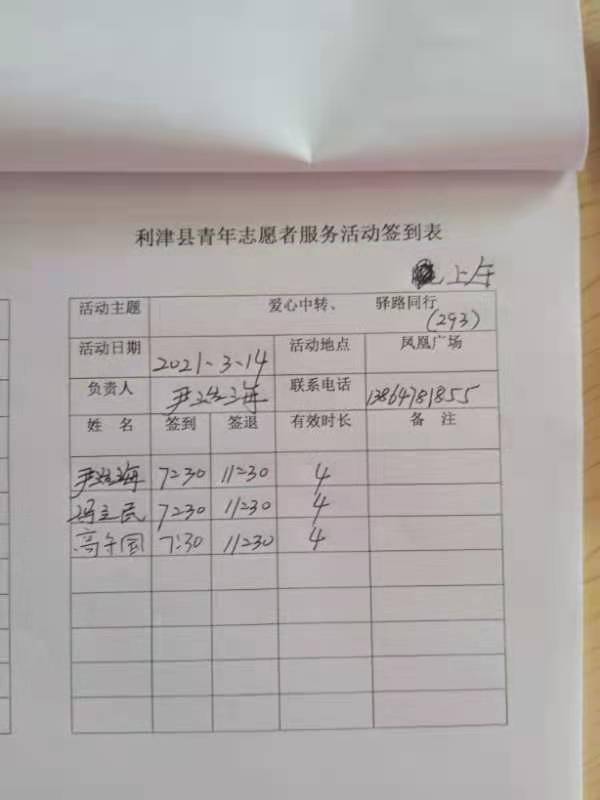 利津县青年志愿者服务活动签到表
上午
活动主题 爱心中转、 驿路同行
(293)
活动日期 2021-3-14 活动地点 凤凰广场
负责人 尹 海 联系电话 13864781855
姓 名 签到 签退 有效时长 备 注
尹 海 7:30 11:30 4
冯立民 7:30 11:30 4
高 国 7:30 11:30 4